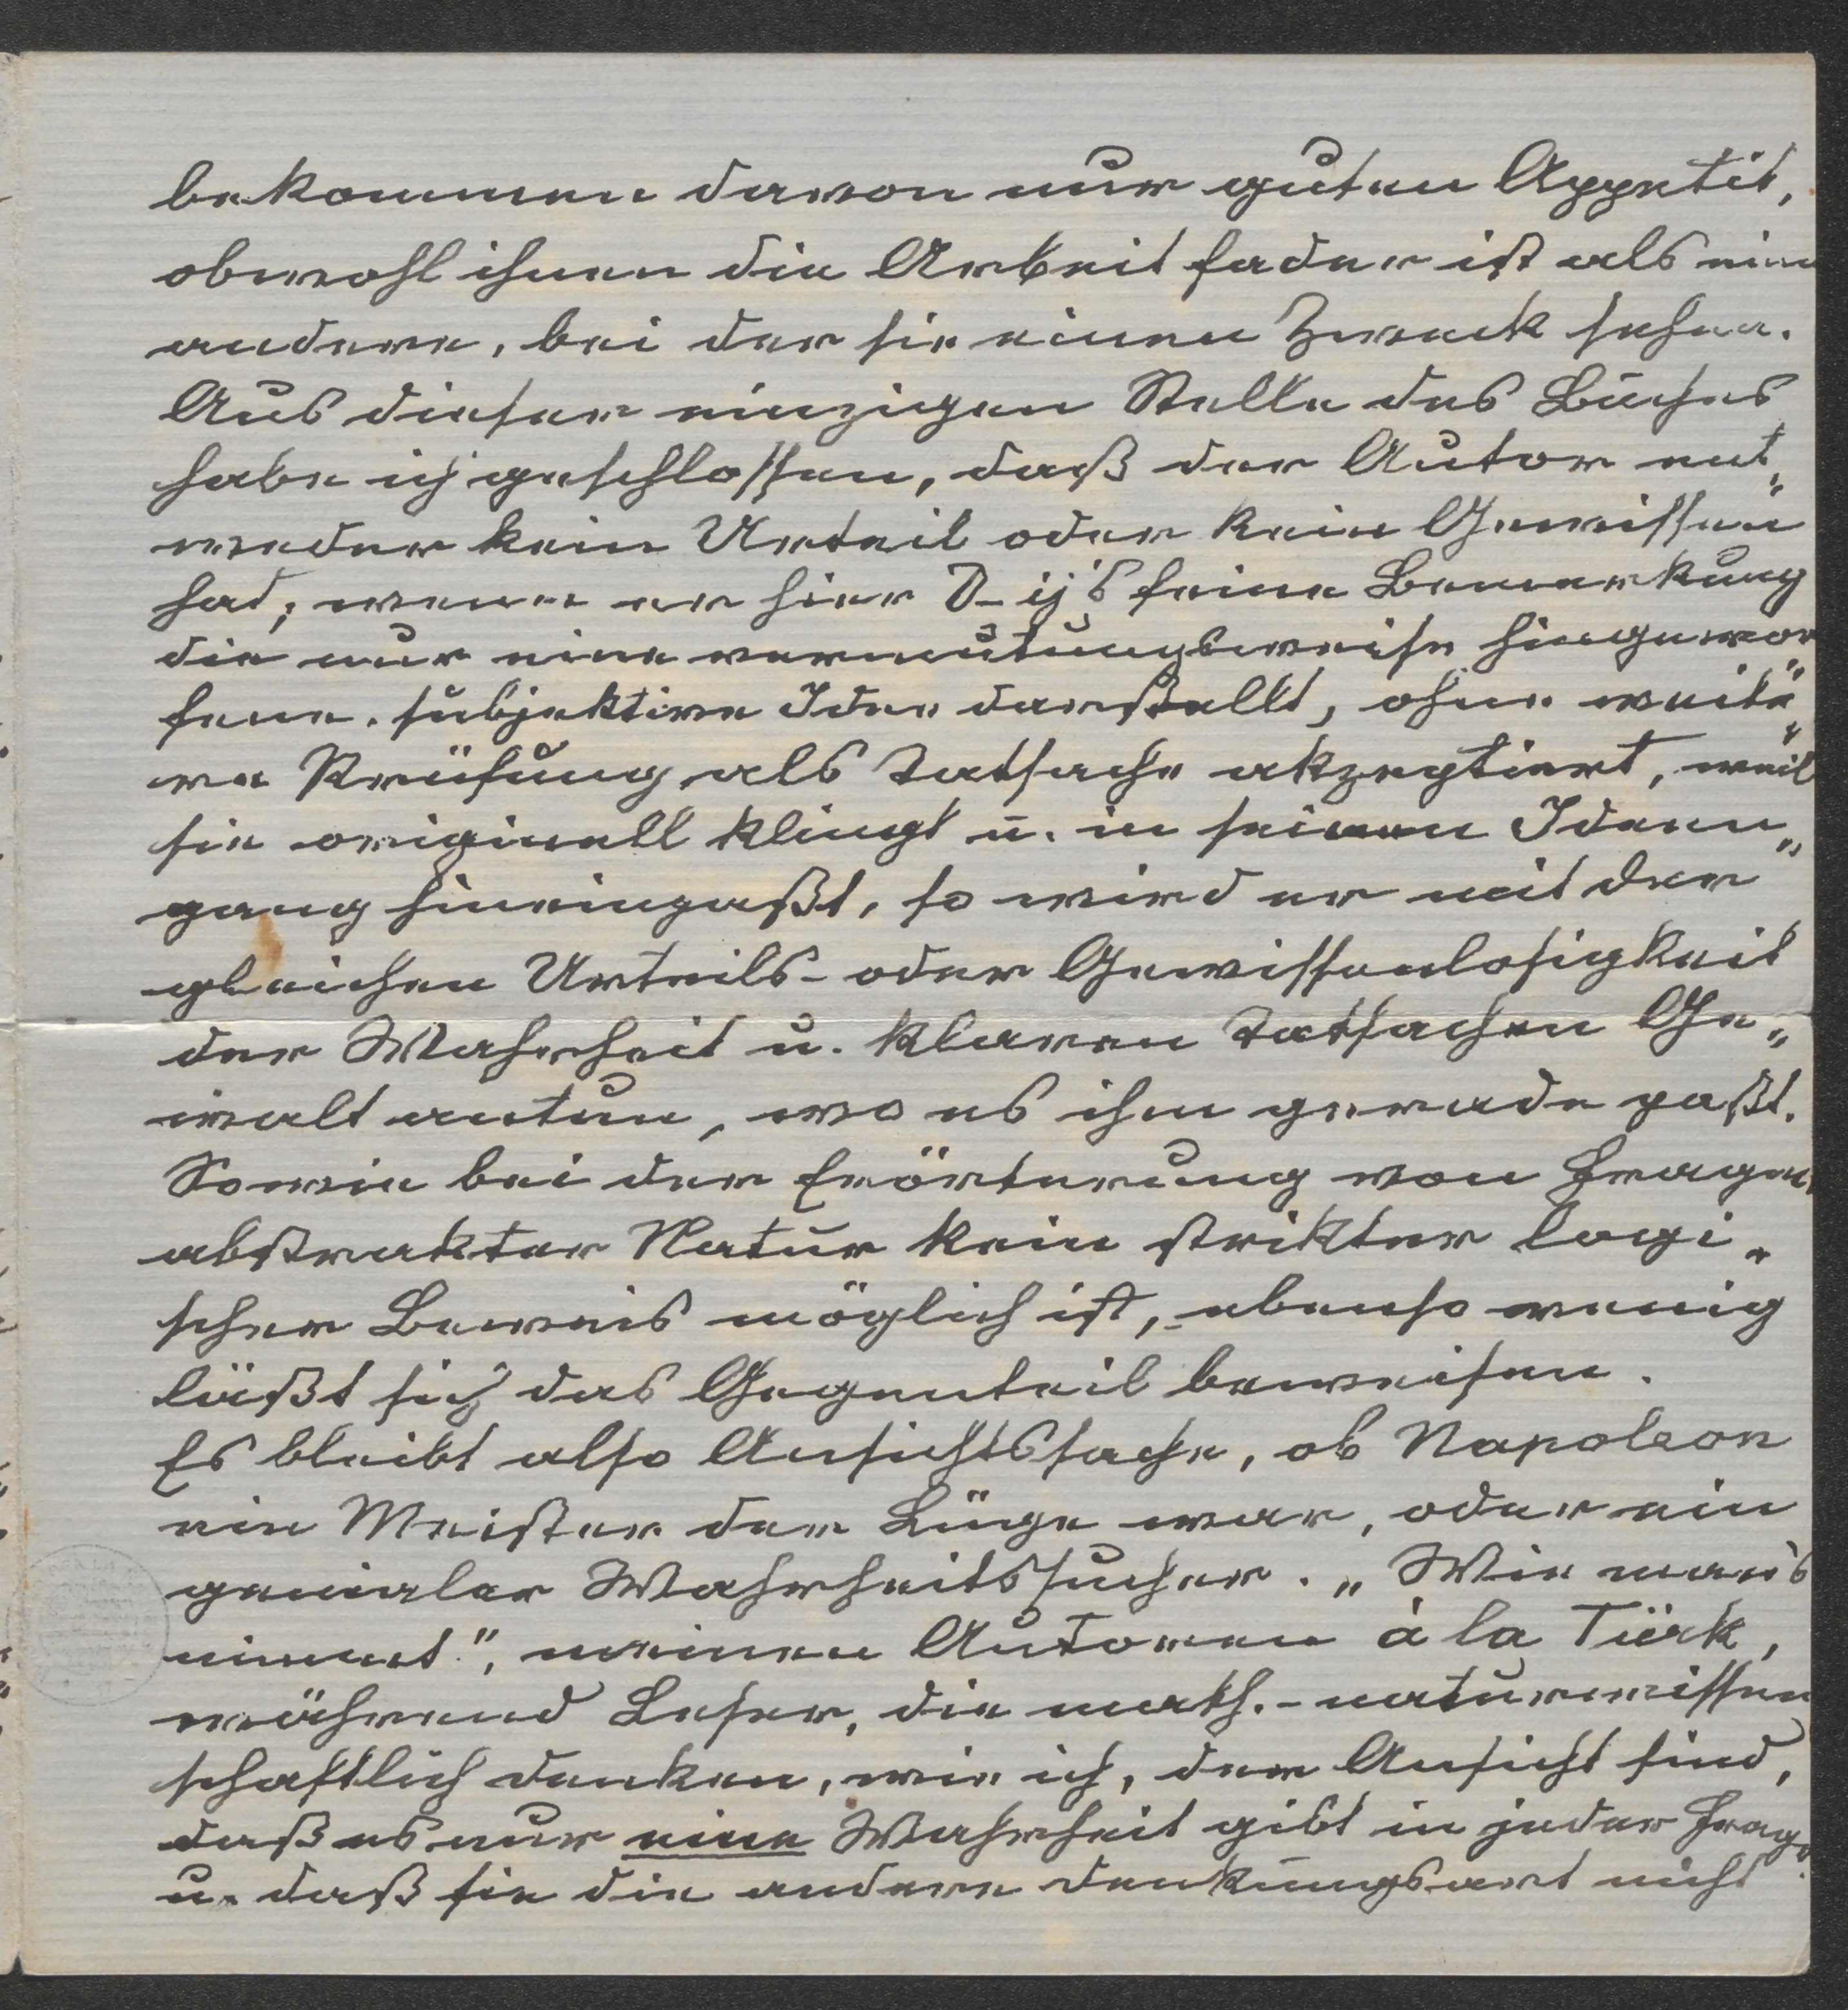 bekommen davon nur guten Appetit,
obwohl ihnen die Arbeit fader ist als eine
andere, bei der sie einen Zweck sehen.
Aus dieser einzigen Stelle des Buches
habe ich geschlossen, daß der Autor ent„
weder kein Urteil oder kein Gewissen
hat; wenn er hier D-ij's feine Bemerkung
die nur eine vermutungsweise hingewor„
fene. subjektive Idee darstellt, ohne weite„
re Prüfung als Tatsache akzeptiert, weil
sie originell klingt u. in seinen Ideen„
gang hineinpaßt, so wird er mit der
gleichen Urteils- oder Gewissenlosigkeit
der Wahrheit u. klaren Tatsachen Ge„
walt antun, wo es ihm gerade paßt.
Sowie bei der Erörterung von Fragen
abstrakter Natur kein strikter logi„
scher Beweis möglich ist, ebenso wenig
läßt sich das Gegenteil beweisen.
Es bleibt also Ansichtssache, ob Napoleon
ein Meister der Lüge war, oder ein
genialer Wahrheitssucher. „Wie man's
nimmt", meinen Autoren à la Türk,
während Leser, die math.-naturwissen
schaftlich denken, wie ich, der Ansicht sind,
daß es nur eine Wahrheit gibt in jeder Frage
u. daß sie die andere Denkungsart nicht